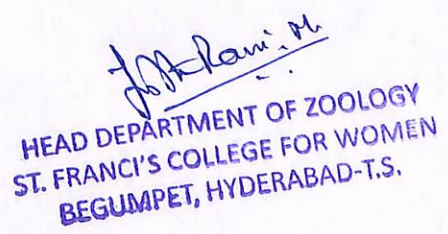 Rani. M
HEAD DEPARTMENT OF ZOOLOGY
ST. FRANCI'S COLLEGE FOR WOMEN
BEGUMPET, HYDERABAD-T.S.